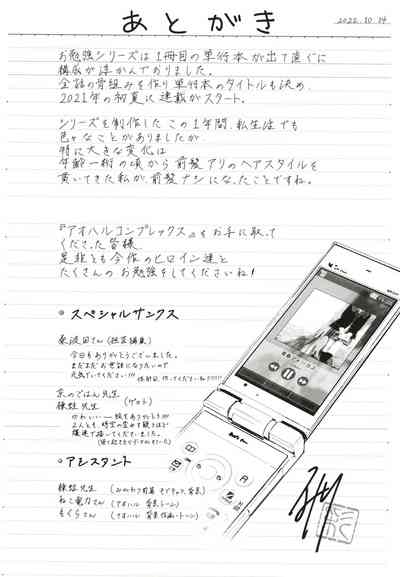 あとがき
2022.10.14
お勉強シリーズは1冊目の単行本が出て直ぐに
構成が浮かんでおりました。
全話の骨組みを作り単行本のタイトルも決め、
2021年の初夏に連載がスタート。
シリーズを制作したこの1年間、私生活でも
色々なことがありましたが
特に大きな変化は
年齢一桁の頃から前髪アリのヘアスタイルを
貫いてきた私が、前髪ナシになったことですね。
『アオハルコンプレックス』をお手に取って
くださった皆様、
是非とも今作のヒロイン達と
たくさんのお勉強をしてくださいね!
スペシャルサンクス
さん(担当編集)
今回もありがとうございました。
まだまだお世話になりたいので
元気でいてください!!!
京のごはん先生
先生
(ゲスト)
かわいい
アシスタント
先生
ねこ電力さん(アオハル 背景・トーン)
もくらさん(アオハル 背景作画・トーン)